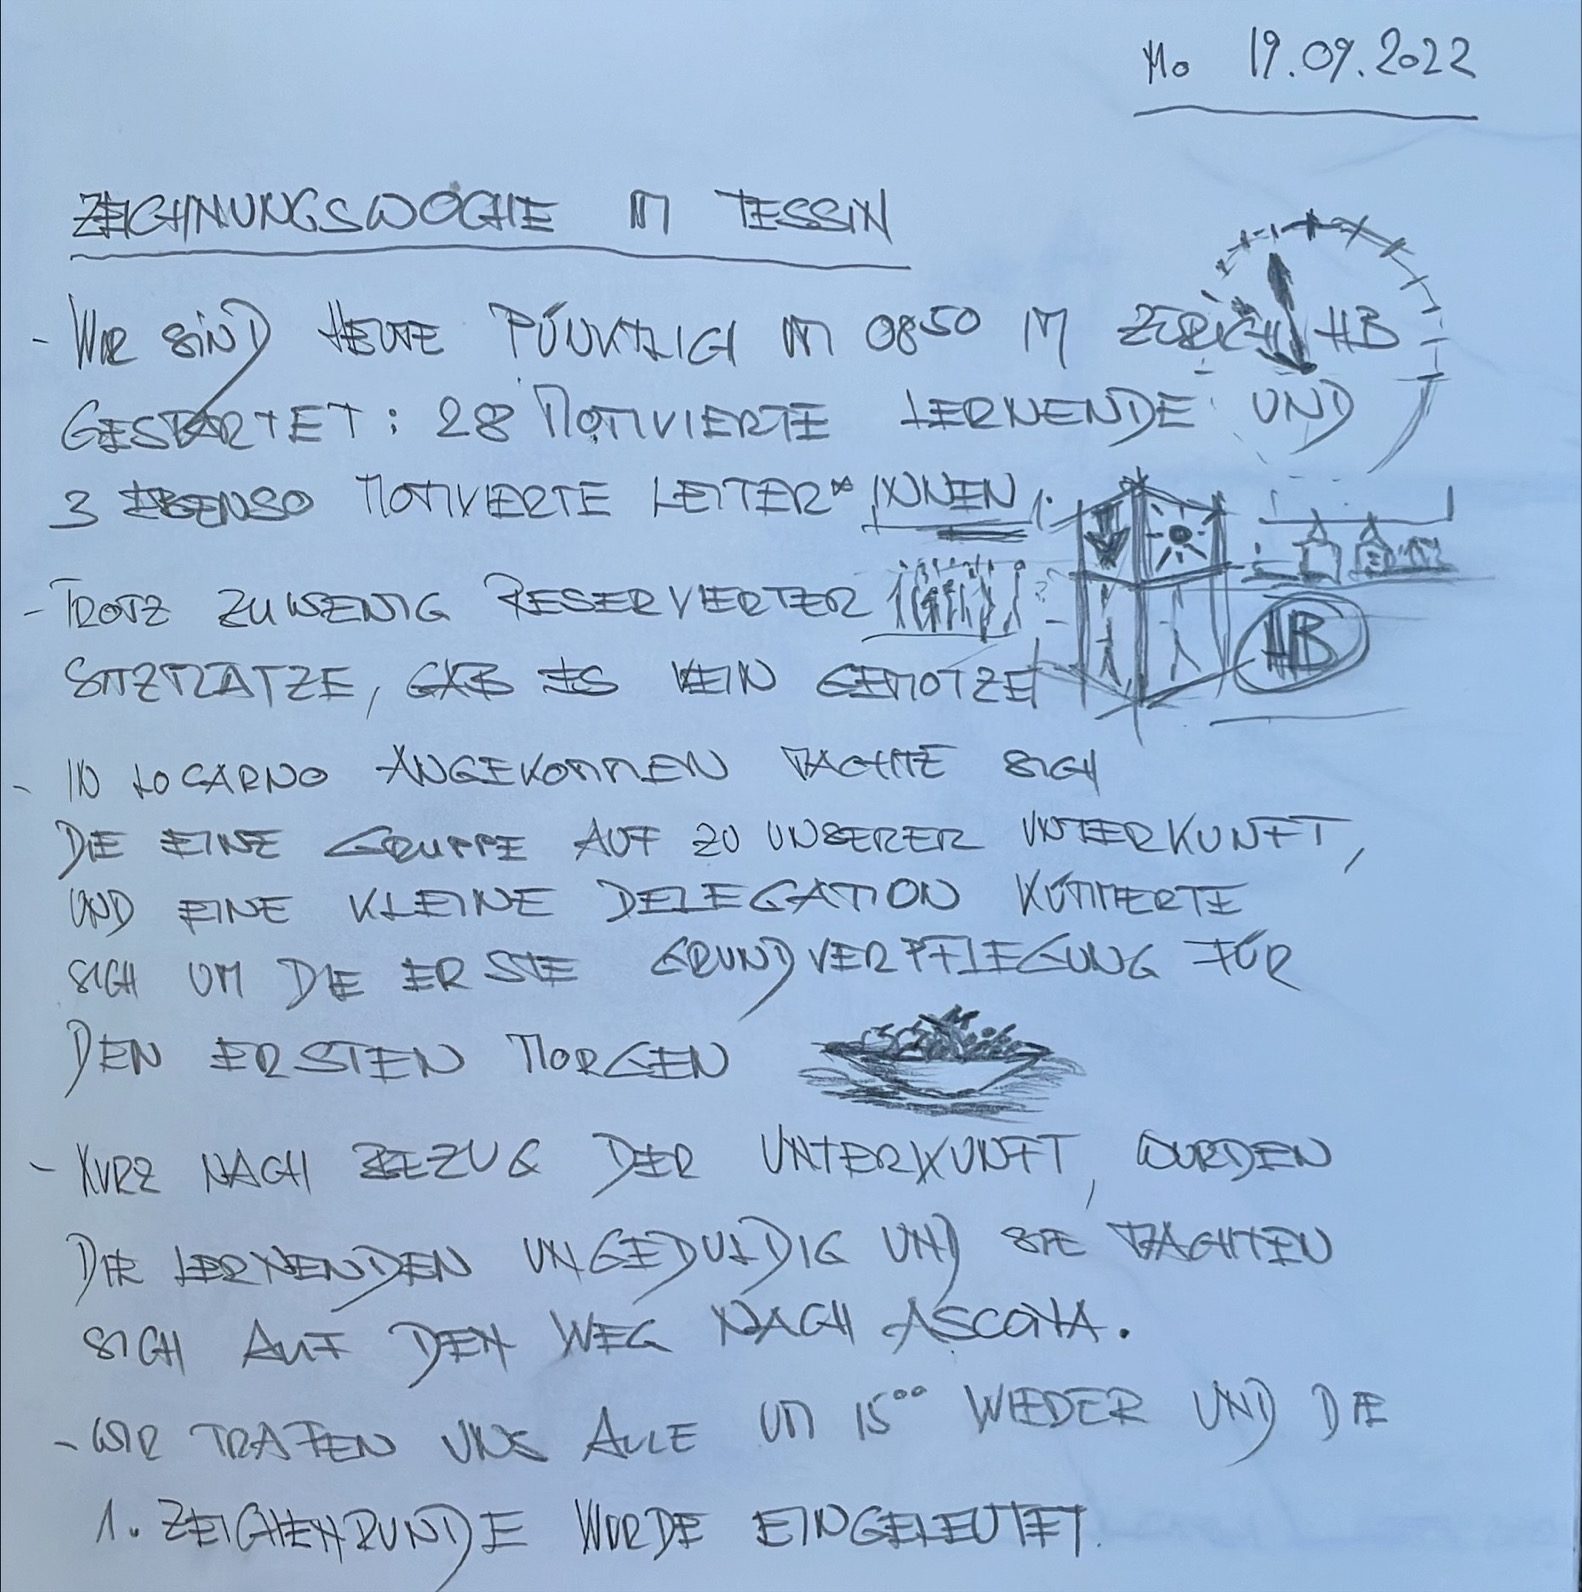 Mo 19.09.2022
ZEICHNUNGSWOCHE IM TESSIN
- WIR SIND HEUTE PÜNKTLICH UM 08⁵⁰ IM ZÜRICH HB
GESTARTET: 28 MOTIVIERTE LERNENDE UND
3 EBENSO MOTIVIERTE LEITER*INNEN.
- TROTZ ZU WENIG RESERVIERTER
SITZPLÄTZE, GAB ES KEIN GEMOTZE
HB
- IN LOCARNO ANGEKOMMEN MACHTE SICH
DIE EINE GRUPPE AUF ZU UNSERER UNTERKUNFT,
UND EINE KLEINE DELEGATION KÜMMERTE
SICH UM DIE ERSTE GRUNDVERPFLEGUNG FÜR
DEN ERSTEN MORGEN
- KURZ NACH BEZUG DER UNTERKUNFT, WURDEN
DIE LERNENDEN UNGEDULDIG UND SIE MACHTEN
SICH AUF DEN WEG NACH ASCONA.
- WIR TRAFEN UNS ALLE UM 15⁰⁰ WIEDER UND DIE
1. ZEICHENRUNDE WURDE EINGELEUTET.